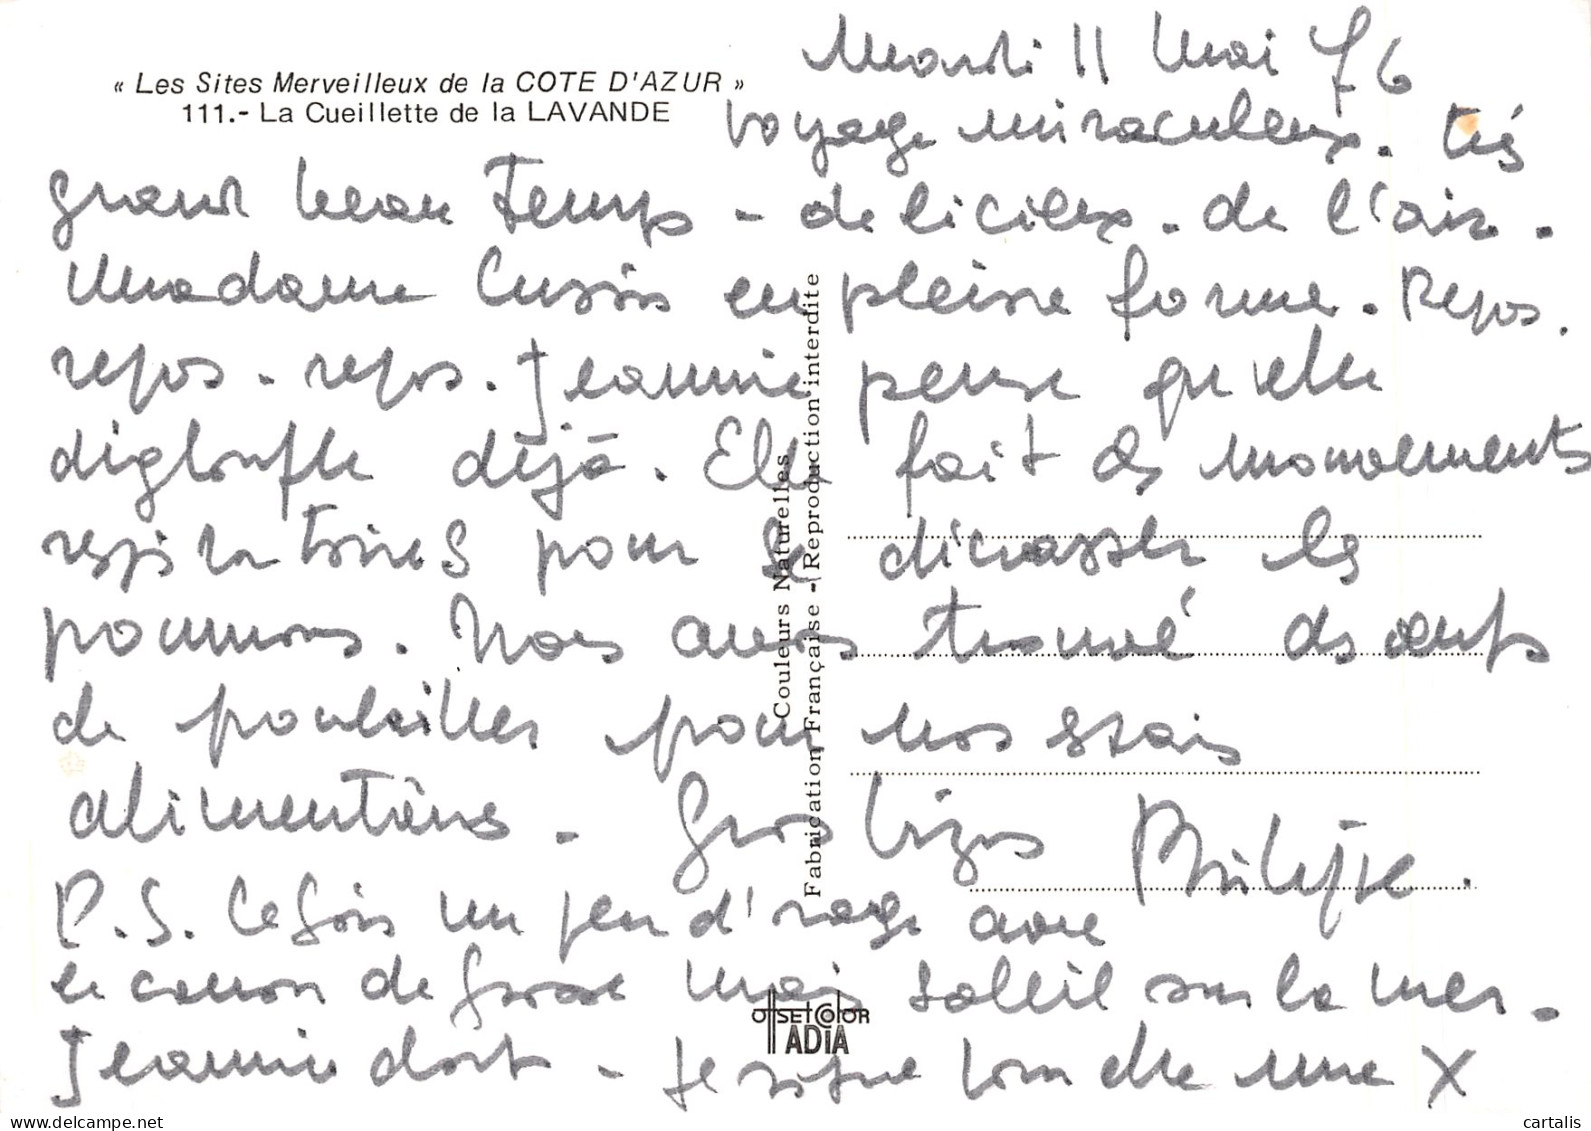 « Les Sites Merveilleux de la COTE D'AZUR »
111.- La Cueillette de la LAVANDE
Mardi 11 Mai 76
Voyage miraculeux. très
grand beau Temps - délicieux. de l'air.
Madame en pleine forme. Repos.
repos. repos. Jeannie pense qu'elle
dégonfle déjà. Elle fait des mouvements
respiratoires pour se décrasser les
poumons. Nous avons trouvé des œufs
de pour nos essais
alimentaires. Gros bizous Philippe.
P.S. Ce soir un peu d'orage avec
le canon de mais soleil sur la mer.
Jeannie dort - Je signe pour elle une X
Couleurs Naturelles
Fabrication Française - Reproduction interdite
OFFSET COLOR
ADIA
delcampe.net
cartalis